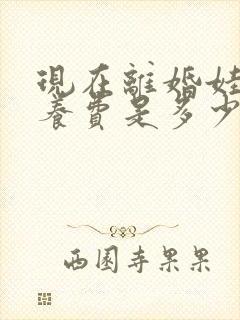 現在離婚娃
養費是多少
西園寺果果